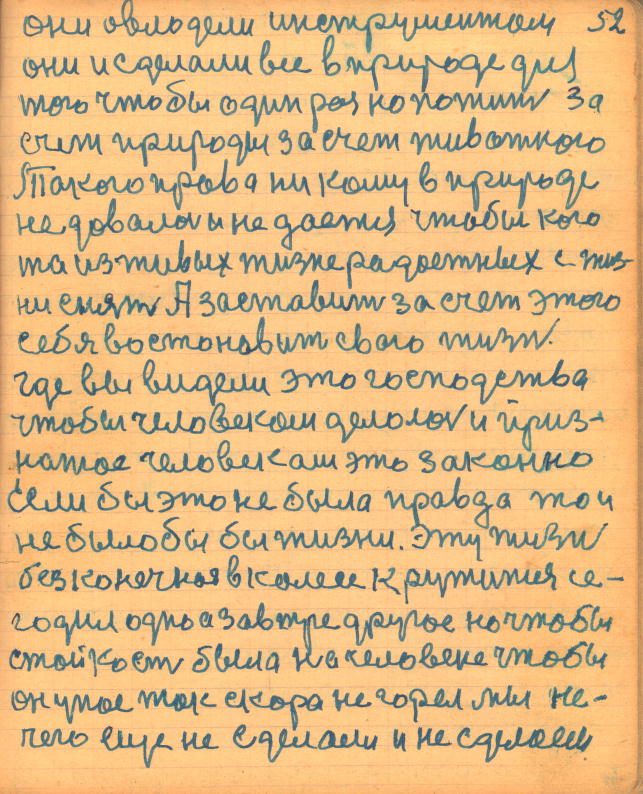 они овлодели инструментом 52
они исделали все в природе для
того чтобы один роз копотит за
счет природы за счет животного
Такого права никому в природе
не довалос и не дается чтобы кого
та из живых жизнерадостных с жиз-
ни снят А заставит за счет этого
себя востоновит свою жизн.
где вы видели это господства
чтобы человеком делолос и приз-
натое человекам это законно
Если бы это не была правда то и
не было бы бы жизни. Эту жизн
безконечноя в колесе кружится се-
годил одно а завтре другое но чтобы
стойкост была на человеке чтобы
он упое так скора не горел мы не-
чего еще не сделали и не сделаем